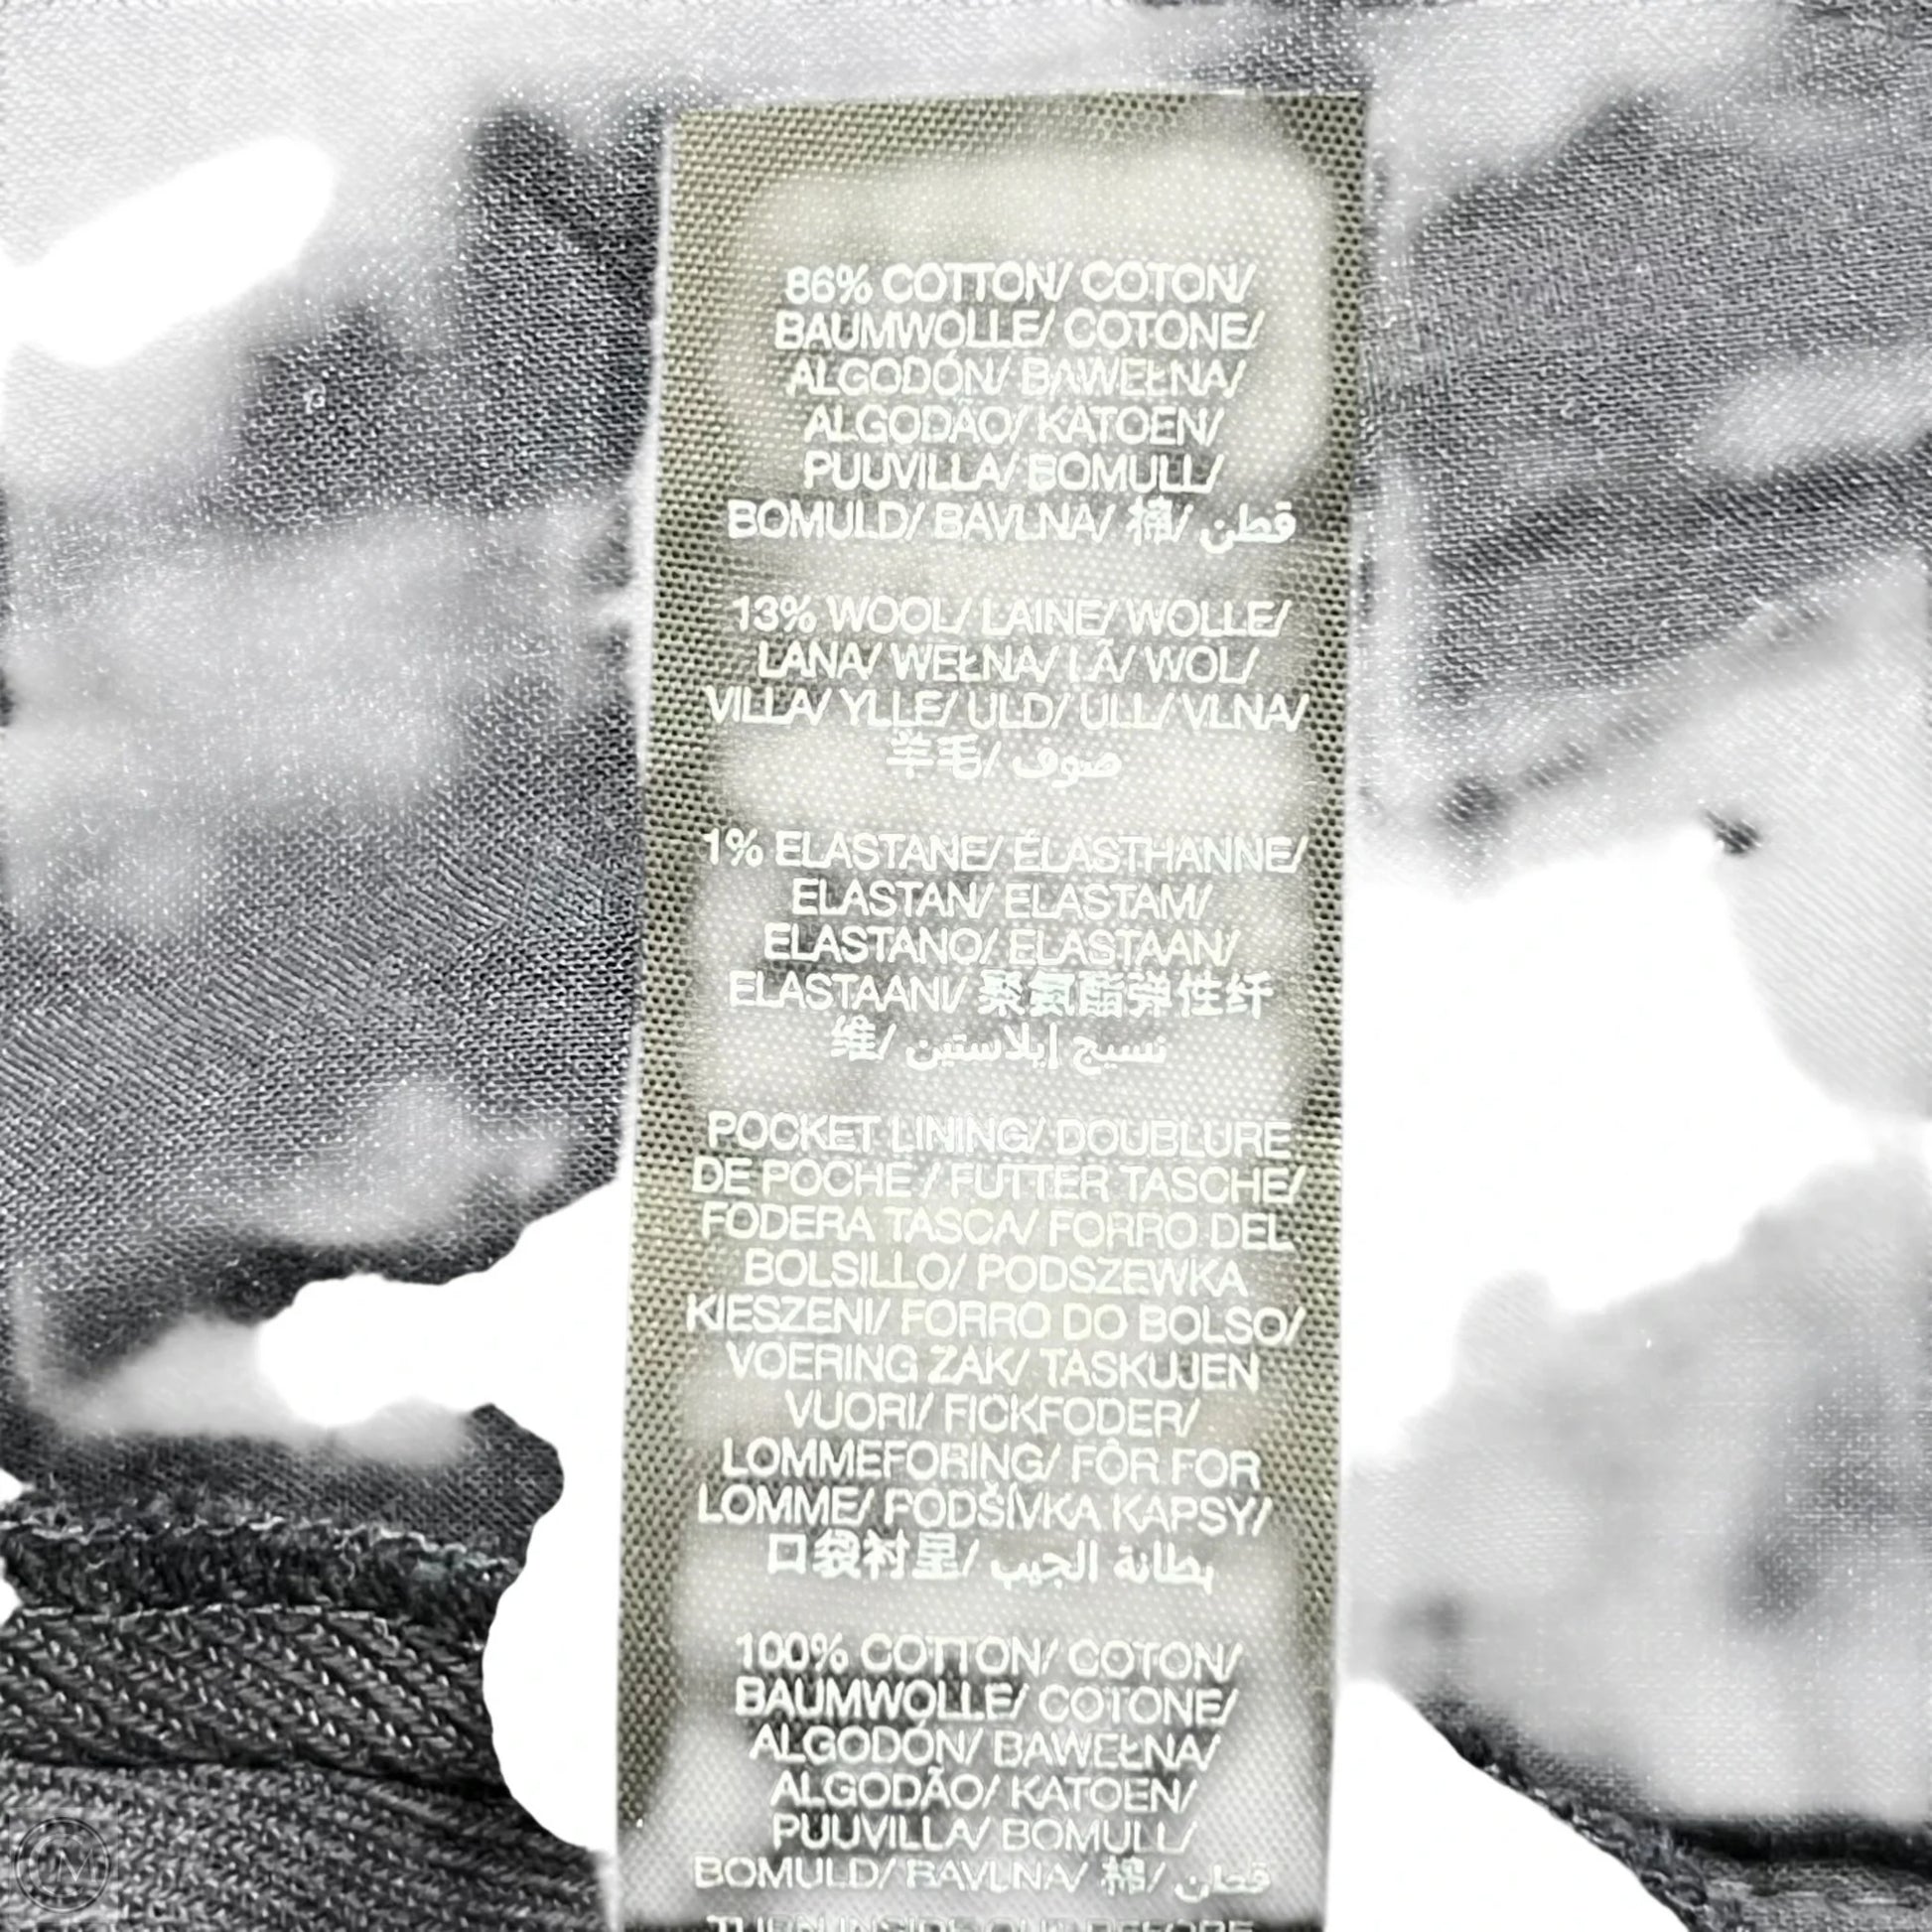 86% COTTON/ COTON/
BAUMWOLLE/ COTONE/
ALGODÓN/ BAWEŁNA/
ALGODÃO/ KATOEN/
PUUVILLA/ BOMULL/
BOMULD/ BAVLNA/ 棉/ قطن
13% WOOL/ LAINE/ WOLLE/
LANA/ WEŁNA/ LÃ/ WOL/
VILLA/ YLLE/ ULD/ ULL/ VLNA/
羊毛/ صوف
1% ELASTANE/ ÉLASTHANNE/
ELASTAN/ ELASTAM/
ELASTANO/ ELASTAAN/
ELASTAANI/ 聚氨酯弹性纤
维/ نسيج إيلاستين
POCKET LINING/ DOUBLURE
DE POCHE / FUTTER TASCHE/
FODERA TASCA/ FORRO DEL
BOLSILLO/ PODSZEWKA
KIESZENI/ FORRO DO BOLSO/
VOERING ZAK/ TASKUJEN
VUORI/ FICKFODER/
LOMMEFORING/ FÔR FOR
LOMME/ PODŠÍVKA KAPSY/
口袋衬里/ بطانة الجيب
100% COTTON/ COTON/
BAUMWOLLE/ COTONE/
ALGODÓN/ BAWEŁNA/
ALGODÃO/ KATOEN/
PUUVILLA/ BOMULL/
BOMULD/ BAVLNA/ 棉/ قطن
TURN INSIDE OUT BEFORE